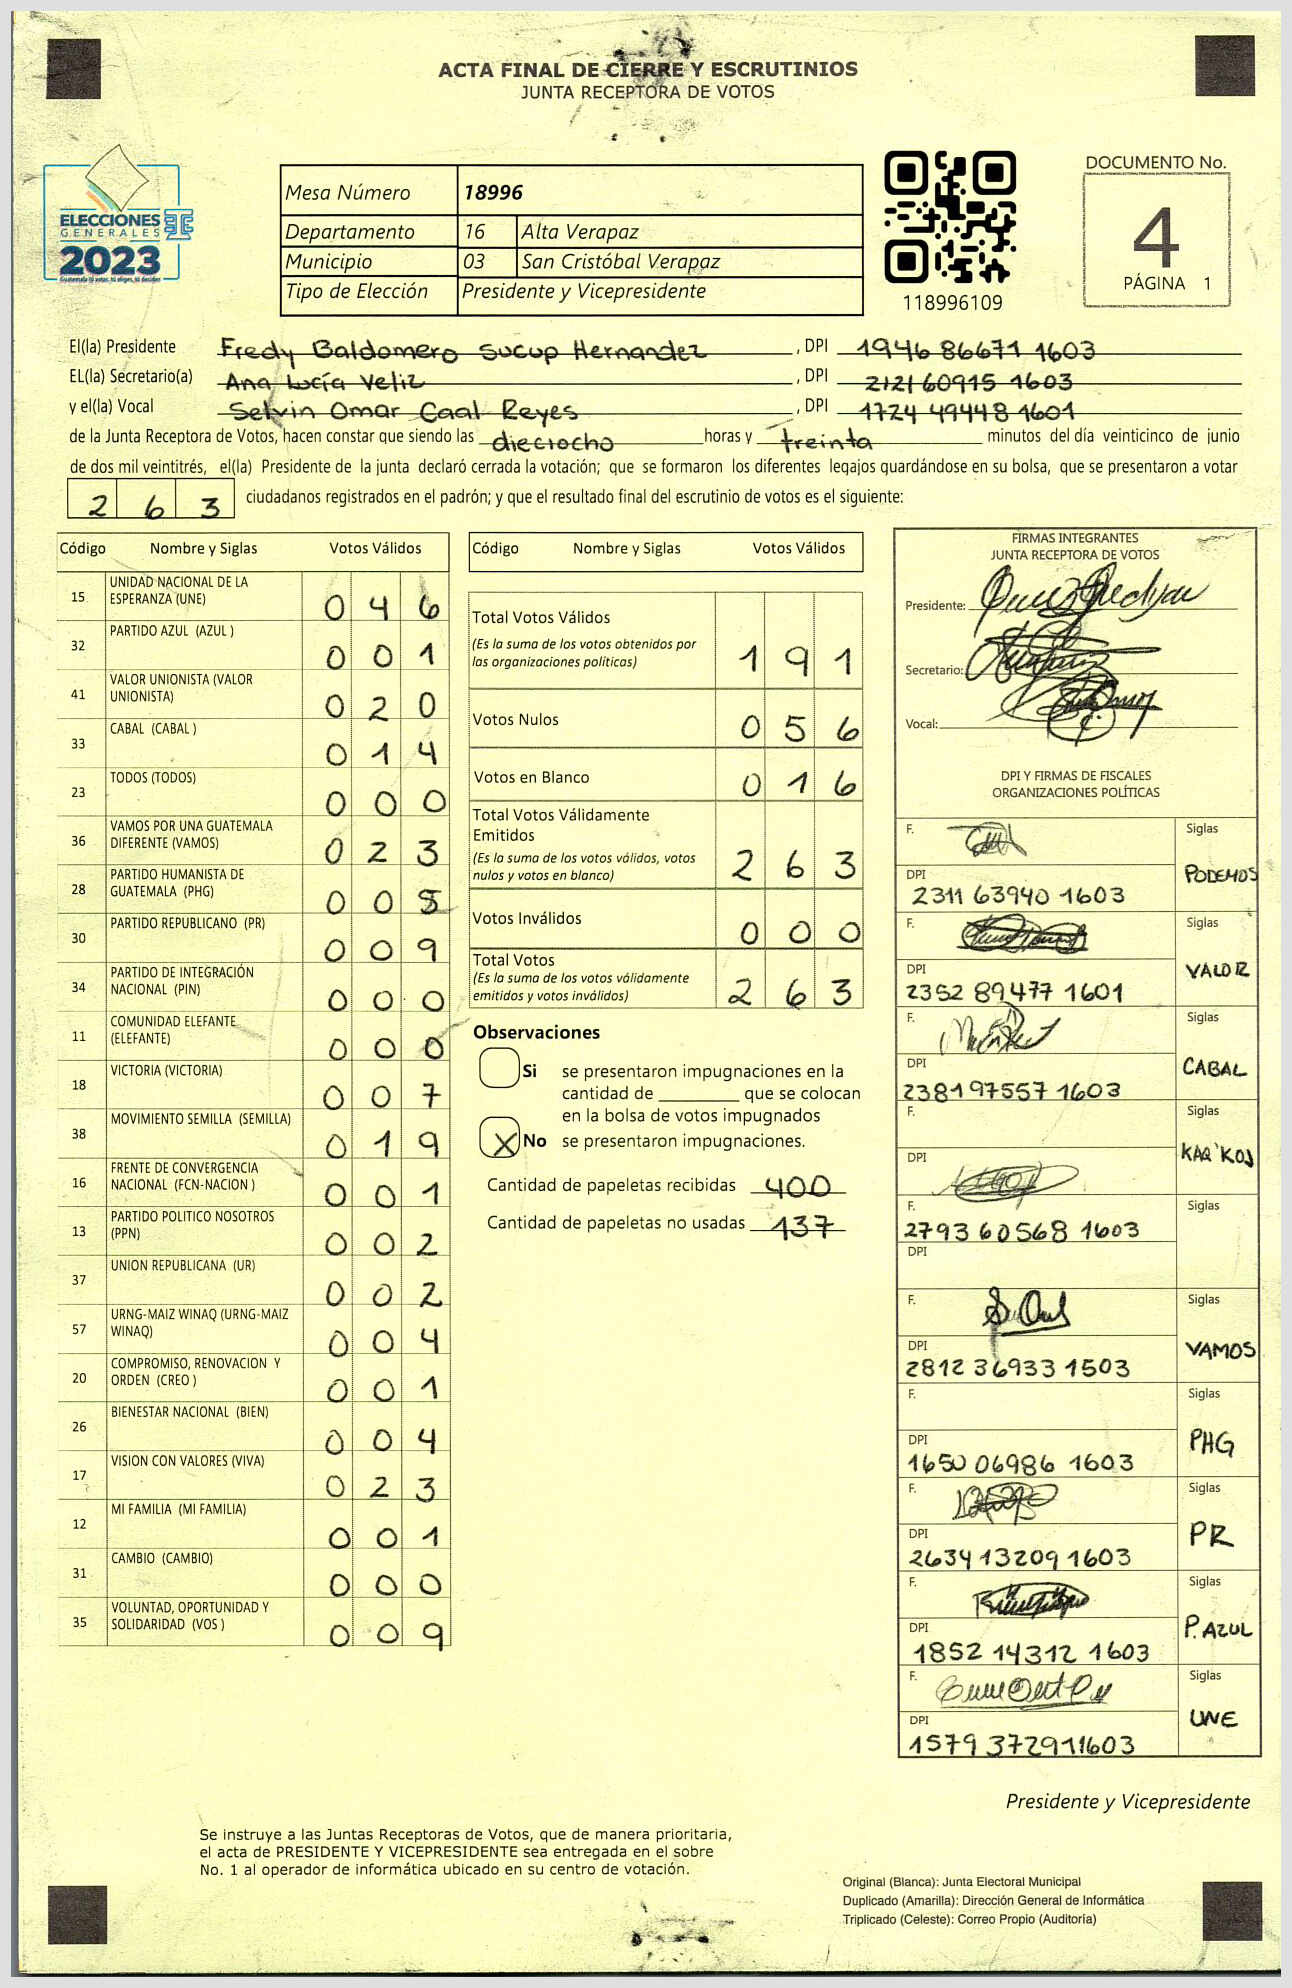 ACTA FINAL DE CIERRE Y ESCRUTINIOS
JUNTA RECEPTORA DE VOTOS
ELECCIONES
GENERALES
2023
Mesa Número 18996
Departamento 16 Alta Verapaz
Municipio 03 San Cristóbal Verapaz
Tipo de Elección Presidente y Vicepresidente
118996109
DOCUMENTO No.
4
PÁGINA 1
El(la) Presidente Fredy Baldomero Sucup Hernandez , DPI 1946 86671 1603
EL(la) Secretario(a) Ana Lucía Veliz , DPI 2121 60915 1603
y el(la) Vocal Selvin Omar Caal Reyes , DPI 1724 49448 1601
de la Junta Receptora de Votos, hacen constar que siendo las dieciocho horas y treinta minutos del día veinticinco de junio
de dos mil veintitrés, el(la) Presidente de la junta declaró cerrada la votación; que se formaron los diferentes legajos quardándose en su bolsa, que se presentaron a votar
2 6 3 ciudadanos registrados en el padrón; y que el resultado final del escrutinio de votos es el siguiente:
Código Nombre y Siglas Votos Válidos
15 UNIDAD NACIONAL DE LA ESPERANZA (UNE) 0 4 6
32 PARTIDO AZUL (AZUL ) 0 0 1
41 VALOR UNIONISTA (VALOR UNIONISTA) 0 2 0
33 CABAL (CABAL ) 0 1 4
23 TODOS (TODOS) 0 0 0
36 VAMOS POR UNA GUATEMALA DIFERENTE (VAMOS) 0 2 3
28 PARTIDO HUMANISTA DE GUATEMALA (PHG) 0 0 5
30 PARTIDO REPUBLICANO (PR) 0 0 9
34 PARTIDO DE INTEGRACIÓN NACIONAL (PIN) 0 0 0
11 COMUNIDAD ELEFANTE (ELEFANTE) 0 0 0
18 VICTORIA (VICTORIA) 0 0 7
38 MOVIMIENTO SEMILLA (SEMILLA) 0 1 9
16 FRENTE DE CONVERGENCIA NACIONAL (FCN-NACION ) 0 0 1
13 PARTIDO POLITICO NOSOTROS (PPN) 0 0 2
37 UNION REPUBLICANA (UR) 0 0 2
57 URNG-MAIZ WINAQ (URNG-MAIZ WINAQ) 0 0 4
20 COMPROMISO, RENOVACION Y ORDEN (CREO ) 0 0 1
26 BIENESTAR NACIONAL (BIEN) 0 0 4
17 VISION CON VALORES (VIVA) 0 2 3
12 MI FAMILIA (MI FAMILIA) 0 0 1
31 CAMBIO (CAMBIO) 0 0 0
35 VOLUNTAD, OPORTUNIDAD Y SOLIDARIDAD (VOS ) 0 0 9
Código Nombre y Siglas Votos Válidos
Total Votos Válidos
(Es la suma de los votos obtenidos por
las organizaciones politicas) 1 9 1
Votos Nulos 0 5 6
Votos en Blanco 0 1 6
Total Votos Válidamente
Emitidos
(Es la suma de los votos válidos, votos
nulos y votos en blanco) 2 6 3
Votos Inválidos 0 0 0
Total Votos
(Es la suma de los votos válidamente
emitidos y votos inválidos) 2 6 3
Observaciones
Si se presentaron impugnaciones en la
cantidad de ________ que se colocan
en la bolsa de votos impugnados
X No se presentaron impugnaciones.
Cantidad de papeletas recibidas 400
Cantidad de papeletas no usadas 137
FIRMAS INTEGRANTES
JUNTA RECEPTORA DE VOTOS
Presidente:
Secretario:
Vocal:
DPI Y FIRMAS DE FISCALES
ORGANIZACIONES POLÍTICAS
F. Siglas
DPI PODEMOS
2311 63940 1603
F. Siglas
DPI VALOR
2352 89477 1601
F. Siglas
DPI CABAL
2381 97557 1603
F. Siglas
DPI KAQ'KOJ
F. Siglas
2793 60568 1603
DPI
F. Siglas
DPI VAMOS
2812 36933 1503
F. Siglas
DPI PHG
1650 06986 1603
F. Siglas
DPI PR
2634 13209 1603
F. Siglas
DPI P. AZUL
1852 14312 1603
F. Siglas
DPI UNE
1579 37291 1603
Presidente y Vicepresidente
Se instruye a las Juntas Receptoras de Votos, que de manera prioritaria,
el acta de PRESIDENTE Y VICEPRESIDENTE sea entregada en el sobre
No. 1 al operador de informática ubicado en su centro de votación.
Original (Blanca): Junta Electoral Municipal
Duplicado (Amarilla): Dirección General de Informática
Triplicado (Celeste): Correo Propio (Auditoría)